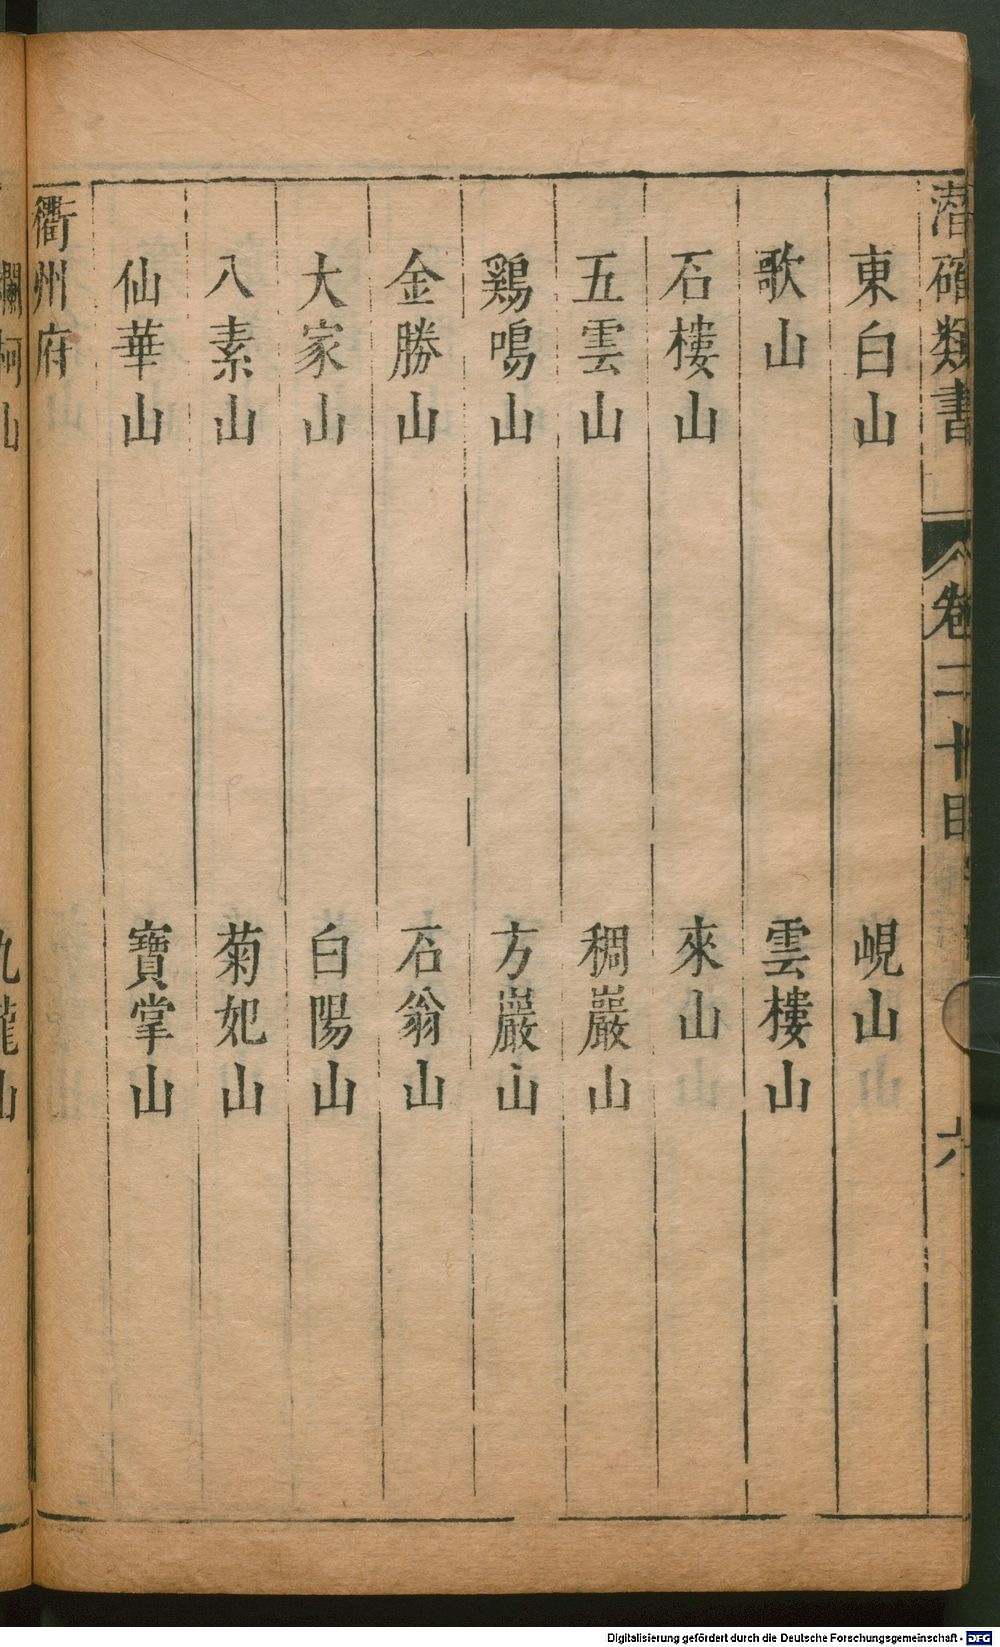 潛確類書 卷二十目 六
東白山 峴山
歌山 雲樓山
石樓山 來山
五雲山 稠巖山
鷄鳴山 方巖山
金勝山 石翁山
大家山 白陽山
八素山 菊妃山
仙華山 寶掌山
衢州府
爛柯山 九龍山
Digitalisierung gefördert durch die Deutsche Forschungsgemeinschaft - DFG